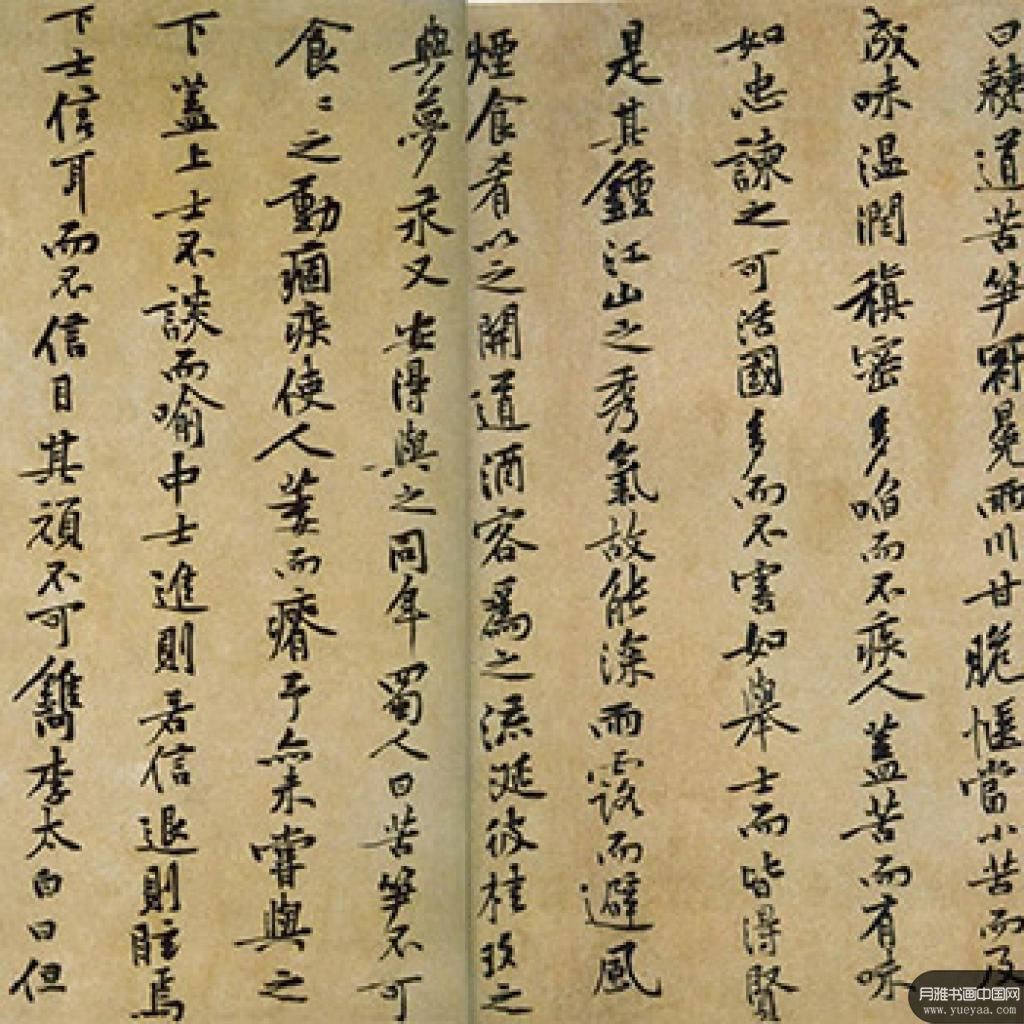 曰僰道苦笋冠冕兩川甘脆愜當小苦而反
成味温潤稹密多啗而不疾人蓋苦而有味
如忠諫之可活國多而不害如舉士而皆得賢
是其鍾江山之秀氣故能深雨露而避風
煙食肴以之開道酒客爲之流涎彼桂玫之
與夢永又安得與之同年蜀人曰苦笋不可
食〻之動痼疾使人萎而瘠予亦未嘗與之
下蓋上士不談而喻中士進則若信退則眩焉
下士信耳而不信目其頑不可鐫李太白曰但
月雅书画中国网
www.yueyaa.com